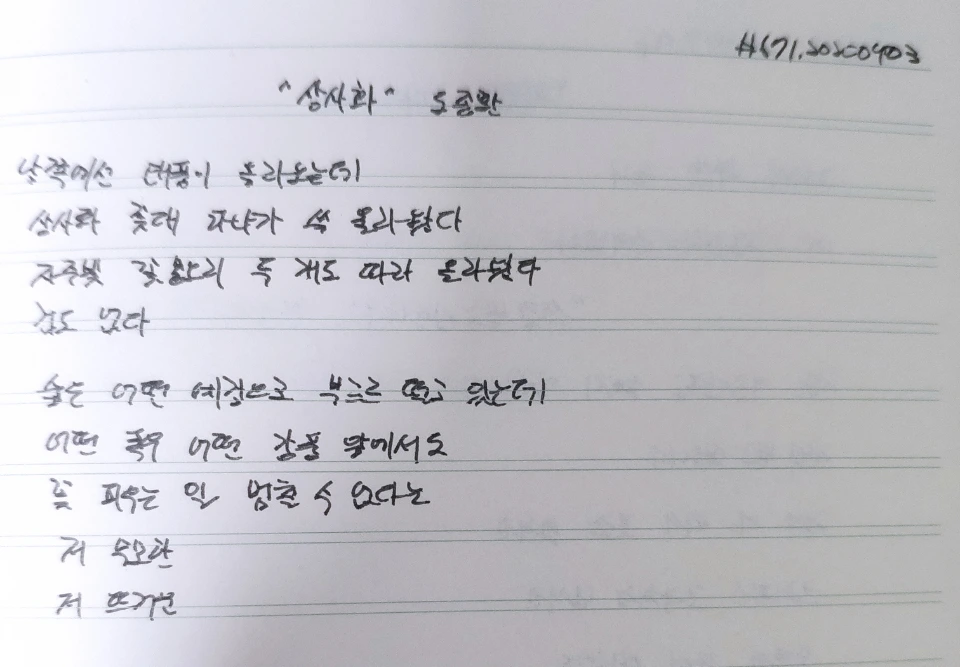 #671.20200403
"상사화" 도종환
남쪽에선 태풍이 올라오는데
상사화 꽃대 하나가 쑥 올라왔다
자주빛 꽃봉오리 두 개도 따라 올라왔다
겁도 없다
숲은 어떤 예감으로 부르르 떨고 있는데
어떤 폭우 어떤 강풍 앞에서도
꽃 피우는 일 멈출 수 없다는
저 무모한
저 뜨거운